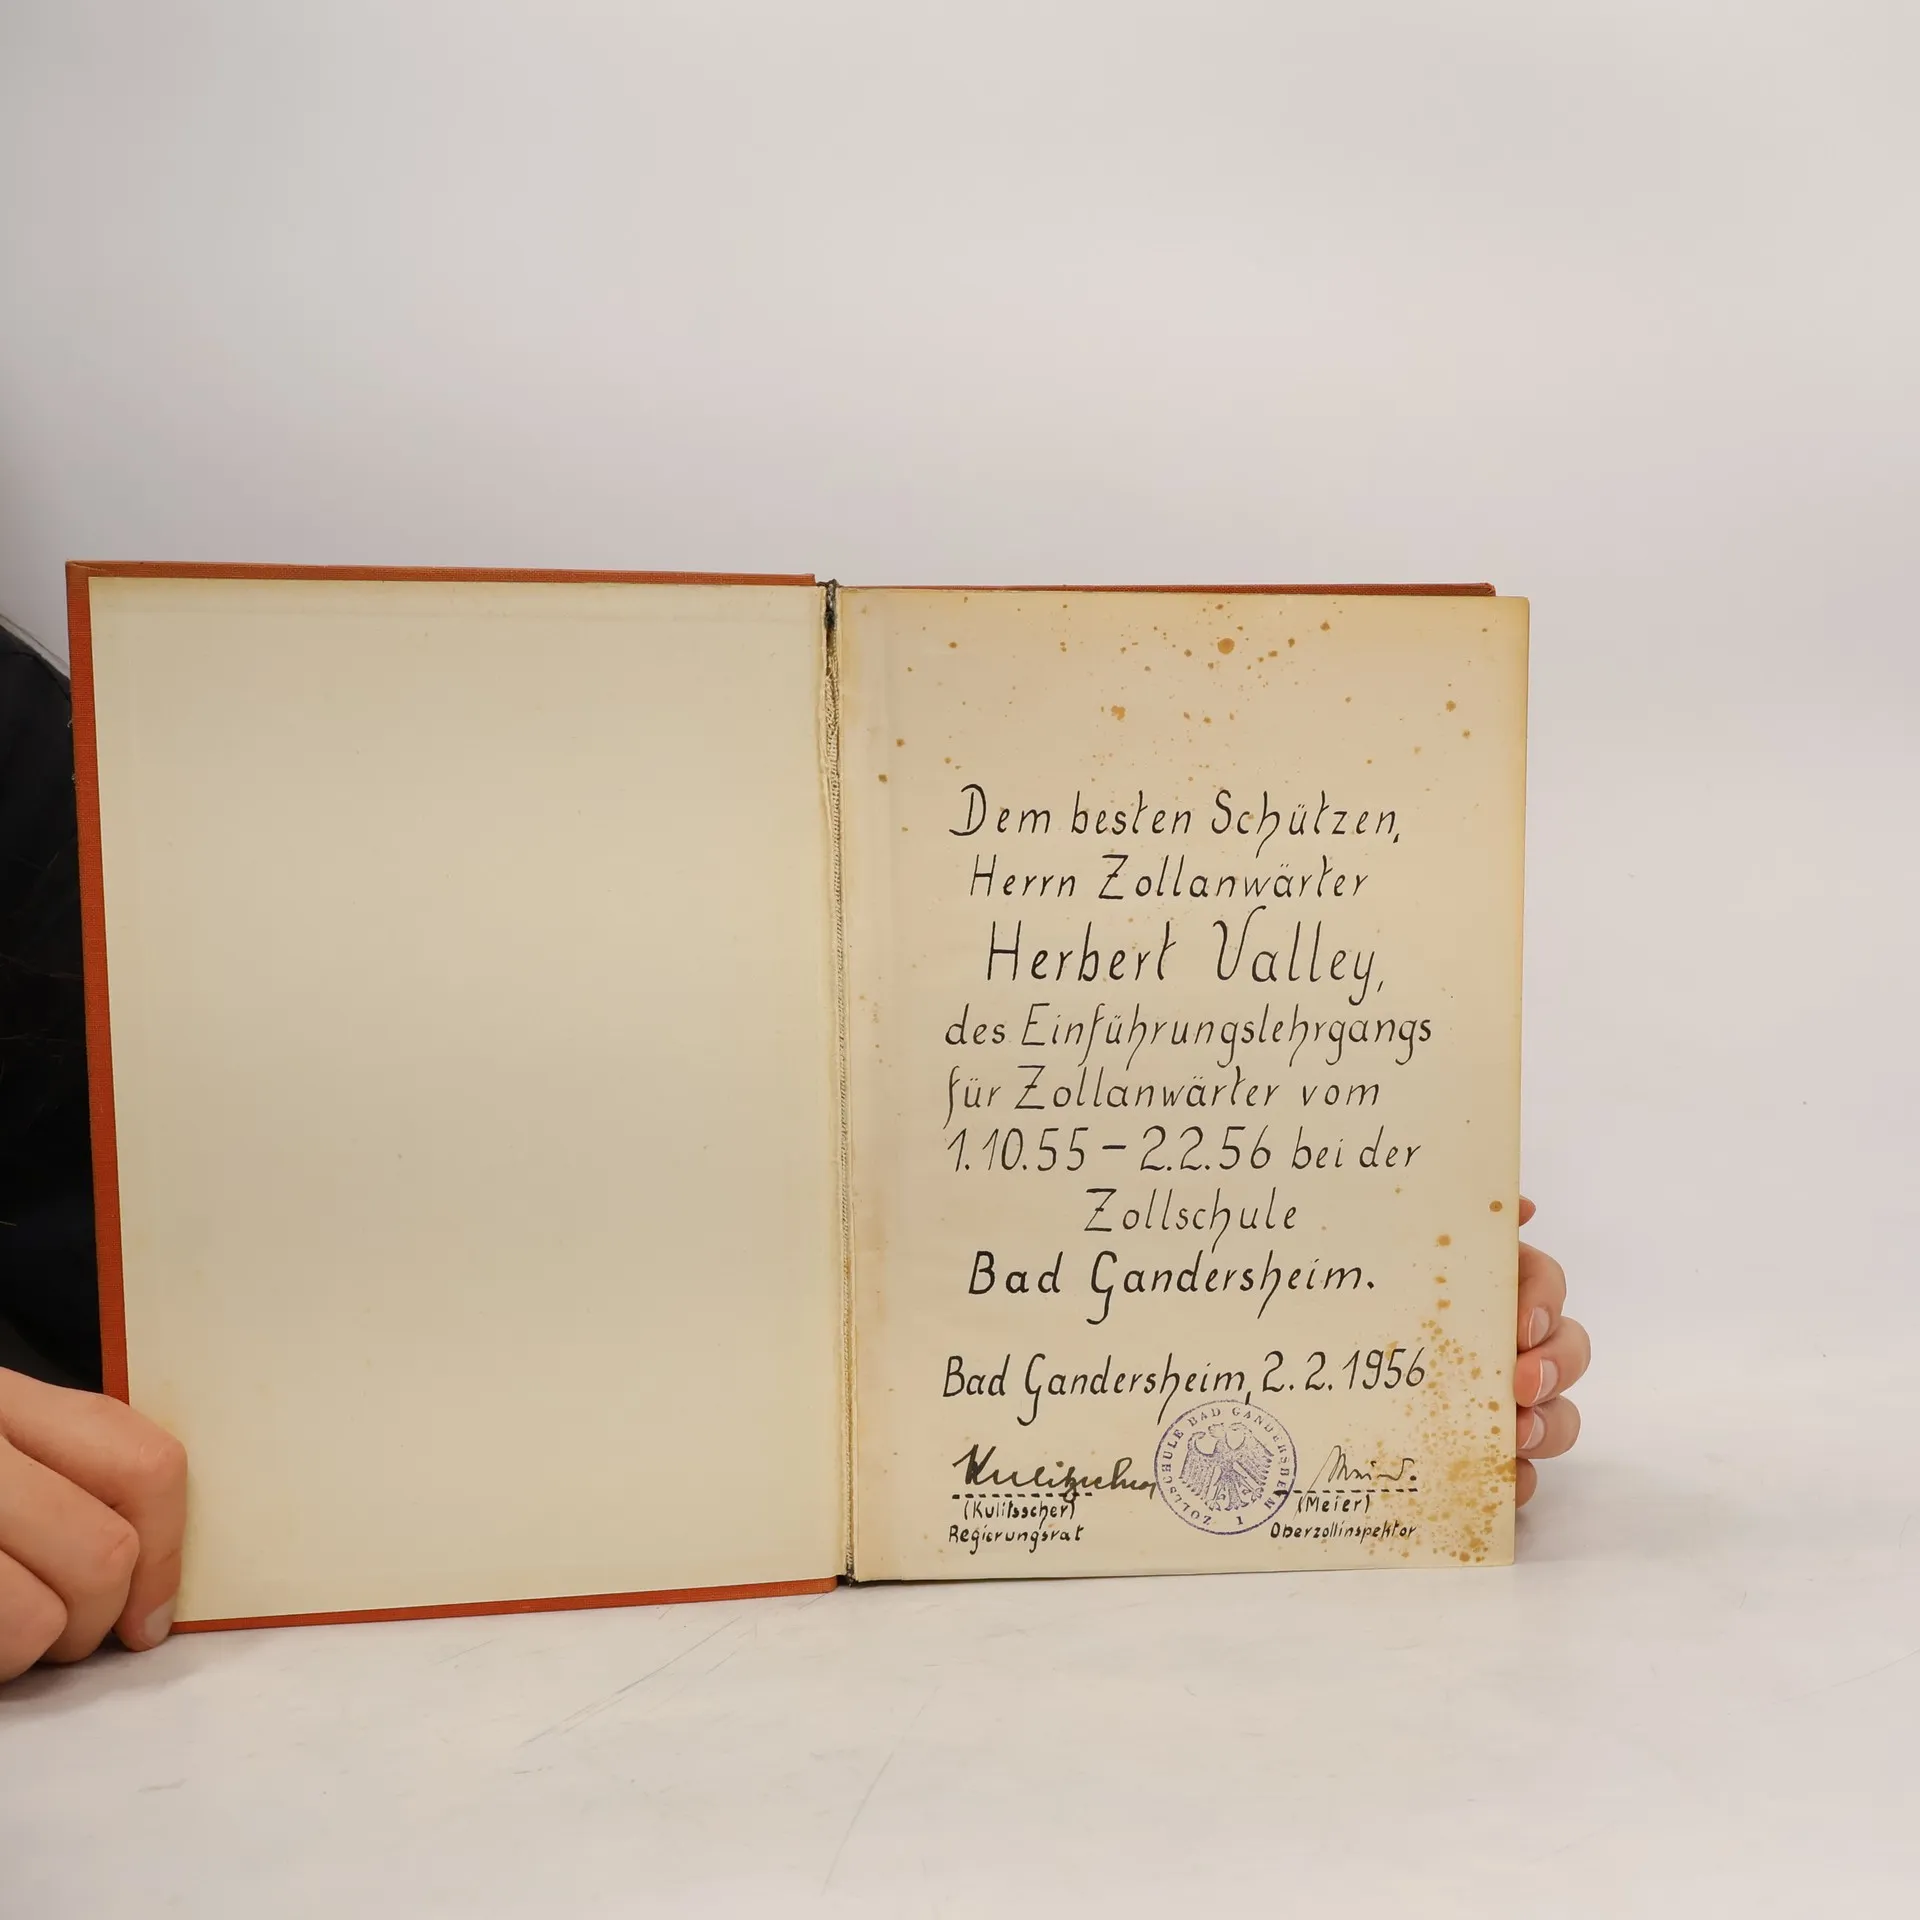 Dem besten Schützen,
Herrn Zollanwärter
Herbert Valley,
des Einführungslehrgangs
für Zollanwärter vom
1.10.55 – 2.2.56 bei der
Zollschule
Bad Gandersheim.
Bad Gandersheim, 2.2.1956
Kulitsscher
(Kulitsscher)
Regierungsrat
ZOLLSCHULE BAD GANDERSHEIM
1
Meier
(Meier)
Oberzollinspektor